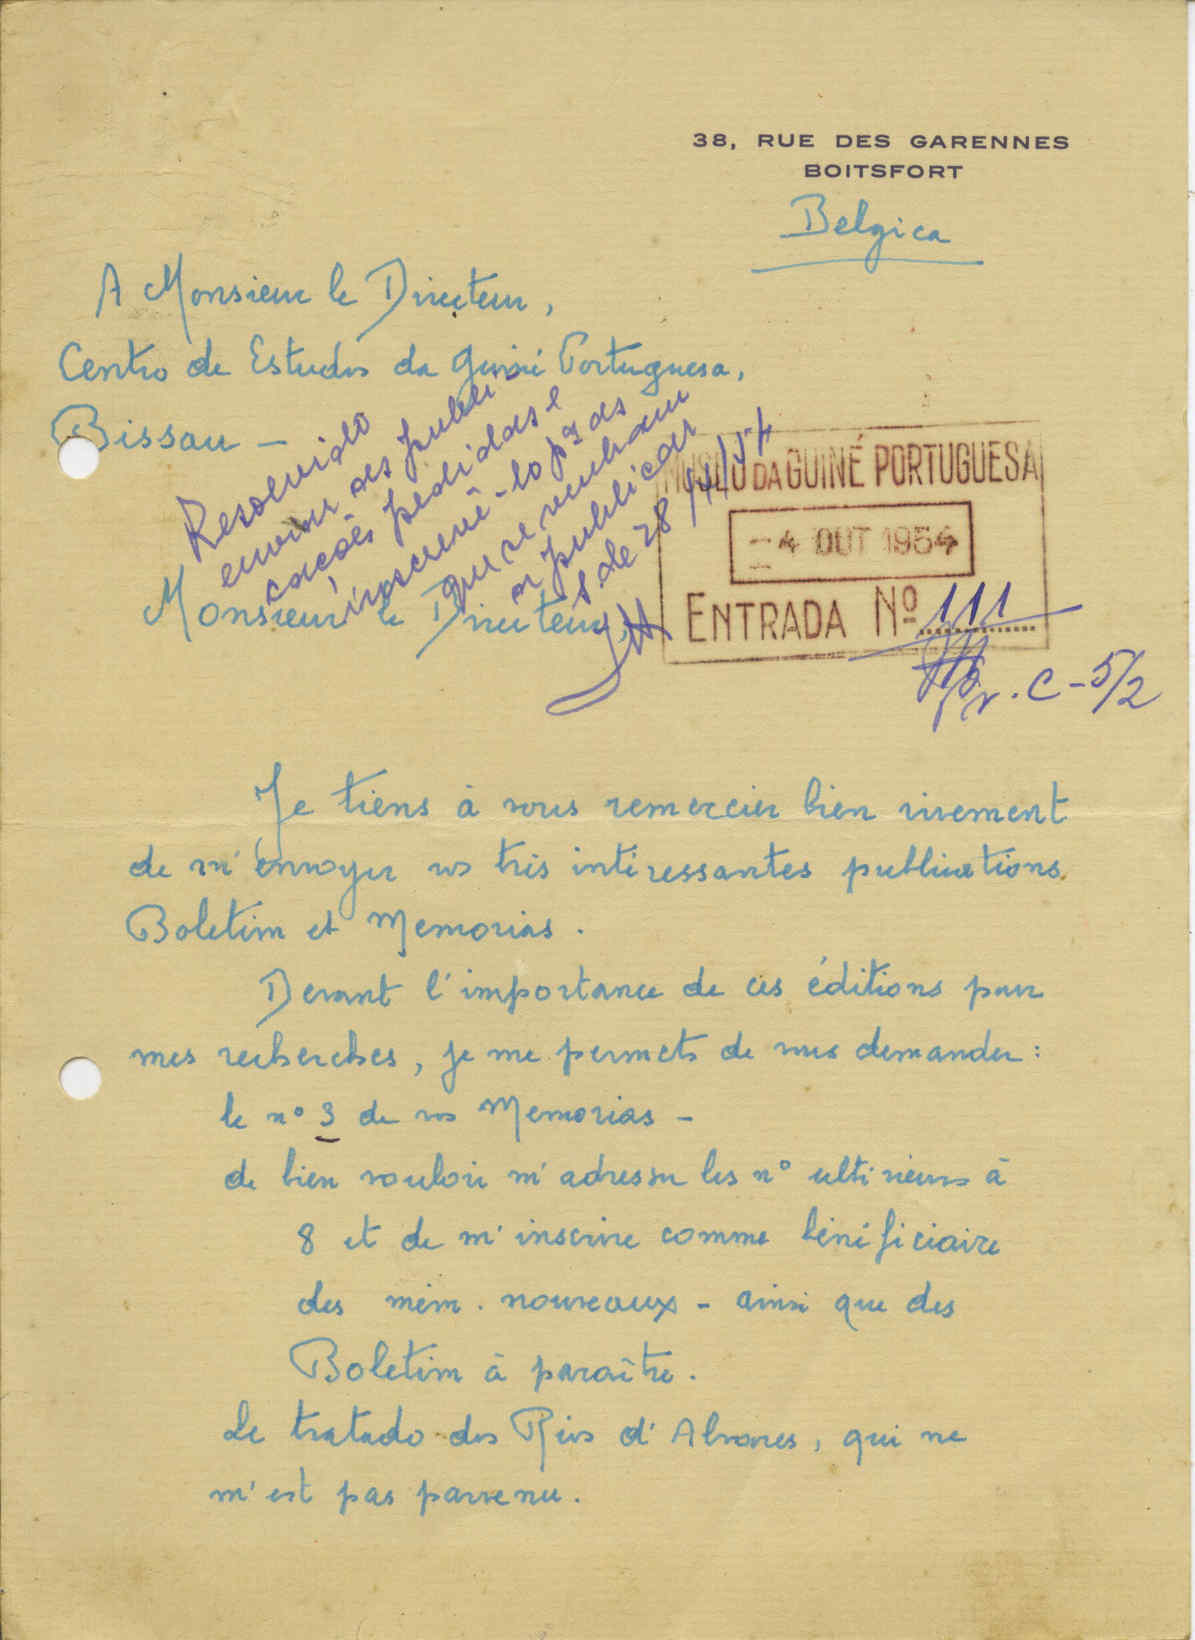 38, RUE DES GARENNES
BOITSFORT
Belgica
A Monsieur le Directeur,
Centro de Estudos da Guiné Portuguesa,
Bissau —
Resolvido
enviar as publi-
cações pedidas e
inscrevê-lo pª as
que se venham
a publicar
28/11/54
MUSEU DA GUINÉ PORTUGUESA
-4 OUT 1954
ENTRADA Nº 111
Pr. C-5/2
Monsieur le Directeur,
Je tiens à vous remercier bien vivement
de m'envoyer vos très intéressantes publications.
Boletim et Memorias.
Devant l'importance de ces éditions pour
mes recherches, je me permets de vous demander :
le n° 3 de vos Memorias -
de bien vouloir m'adresser les n° ultérieurs à
8 et de m'inscrire comme bénéficiaire
des mém. nouveaux - ainsi que des
Boletim à paraître.
Le tratado dos Rios d'Alvares, qui ne
m'est pas parvenu.